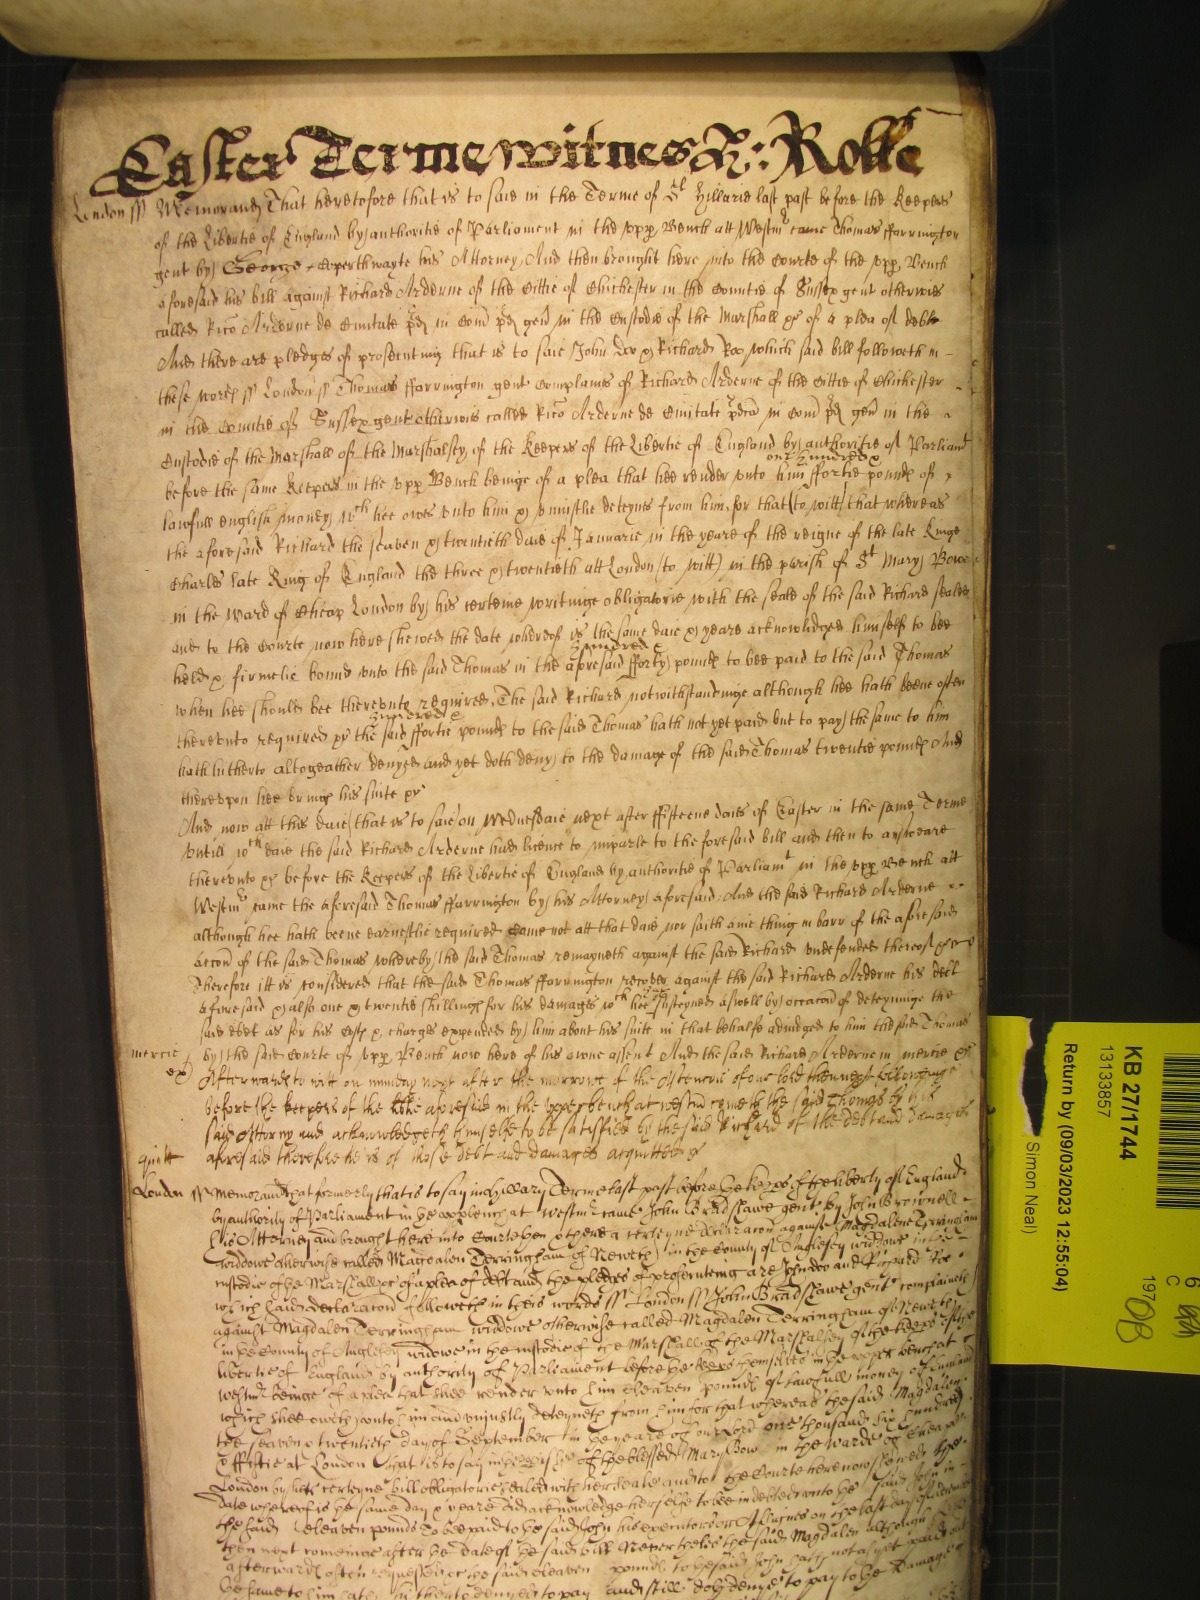 Easter Terme witnes H: Rolle
London ss Memorand That heretofore that is to saie in the Terme of St Hillarie last past before the Keepers
of the Libertie of England by authoritie of Parliament in the upp Bench att Westmr came Thomas ffarrington
gent by George Copperthwayte his Attorney And then brought here into the Courte of the upp Bench
aforesaid his bill against Richard Arderne of the Cittie of Chichester in the Countie of Sussex gent otherwis
called Rico Arderne de Civitate pd in Com pd gen in the Custodie of the Marshall &c of a plea of debte
And there are pledges of prosecuting that is to saie John Doe & Richard Roe which said bill followeth in
these words ss London ss Thomas ffarrington gent Complaines of Richard Arderne of the Cittie of Chichester
in the Countie of Sussex gent otherwis called Rico Arderne de Civitate pdca in Com pd gen in the
Custodie of the Marshall of the Marshalsey of the Keepers of the Libertie of England by authoritie of Parliamt
one hundred &
before the same Keepers in the upp Bench beinge of a plea that hee render unto him ffortie pounds of
lawfull english money wch hee owes unto him & uniustlie deteynes from him, for that (to witt) that whereas
the aforesaid Richard the seaven & twentieth daie of Januarie in the yeare of the reigne of the late Kinge
Charles late King of England the three & twentieth att London (to witt) in the parish of St Mary Bowe
in the Ward of Cheap London by his certeine writinge obligatorie with the seale of the said Richard sealed
and to the Courte now here shewed the date whereof is the same daie & yeare acknowledged himself to bee
hundred &
held & firmelie bound unto the said Thomas in the aforesaid fforty pounds to bee paid to the said Thomas
when hee should bee thereunto required, The said Richard notwithstandinge although hee hath beene often
hundred &
thereunto required &c the said ffortie pounds to the said Thomas hath not yet paid but to pay the same to him
hath hitherto altogeather denyed and yet doth deny to the damage of the said Thomas twentie pounds And
thereupon hee brings his suite &c
And now att this daie (that is to saie) on Wednesdaie next after ffifteene daies of Easter in the same Terme
untill wch daie the said Richard Arderne had licence to imparle to the foresaid bill and then to answeare
thereunto &c before the Keepers of the Libertie of England by authoritie of Parliamt in the upp Bench att
Westmr came the aforesaid Thomas ffarrington by his Attorney aforesaid, And the said Richard Arderne
although hee hath beene earnestlie required came not att that daie nor saith anie thing in barr of the aforesaid
accon of the said Thomas whereby the said Thomas remayneth against the said Richard undefended thereof &c
Therefore itt is considered that the said Thomas ffarrington recover against the said Richard Arderne his debt
aforesaid & also one & twentie shillings for his damages wch hee susteyned aswell by occacon of deteyninge the
said debt as for his costs & charges expended by him about his suite in that behalfe adiudged to him the said Thomas
mercie by the said Courte of upp Bench now here of his owne assent And the said Richard Arderne in mercie &c
Afterwards to witt on munday next after the morrowe of the Ascencon of our lord then next followinge
before the keepers of the libtie aforesaid in the upper bench at westmr cometh the said Thomas by his
said Attorny and acknowledgeth himselfe to be satisfied by the said Richard of the debt and damages
quitt aforesaid therefore he is of those debt and damages acquitted &c
London ss Memorand that formerly that is to say in hillary Terme last past before the keeps of the liberty of England
by authority of Parliament in the upp bench at Westmr came John Bradshawe gent by John Brownell
his Attorney and brought here into Courte then & there a certeyne declaracon against Magdalene Terringham
widdowe otherwise called Magdalen Terringham of Neweth in the County of Anglesey widdowe in the
custodie of the Marshall &c of a plea of debt and the pledges of prosecuteing are John doe and Richard Roe
which said declaracon followeth in theis words ss London ss John Bradshawe gent complaineth
against Magdalen Terringham widdowe otherwise called Magdalen Terringham of Neweth
in the County of Anglesey widdowe in the custodie of the Marshall of the Marshalsey of the keeps of the
libertie of England by authority of Parliament before the keeps themselves in the upper bench at
westmr beinge of a plea that shee render unto him eleaven pounds of lawfull money of England
which shee oweth unto him and uniustly deteyneth from him for that whereas the said Magdalen
the seaven & twentieth day of September in the yeare of our Lord one thousand six hundred
& fiftie at London that is to say in the pish of the blessed Mary Bow in the warde of Cheape
London by her certeyne bill obligatorie sealed with her seale and to the Courte here now shewed the
date whereof is the same day & yeare did acknowledge herselfe to bee indebted unto the said John in
the said eleaven pounds to bee paid to the said John his executors or Assignes on the last day of
then next cominge after the date of the said bill Neverthelesse the said Magdalen although
afterwards often requested &c the said eleaven pounds to the said John hath not as yet paid but
the same to him hath hitherto denyed to pay and still doth denye to pay to the damage
KB 27/1744
13133857
Return by (09/03/2023 12:55:04)
Simon Neal)